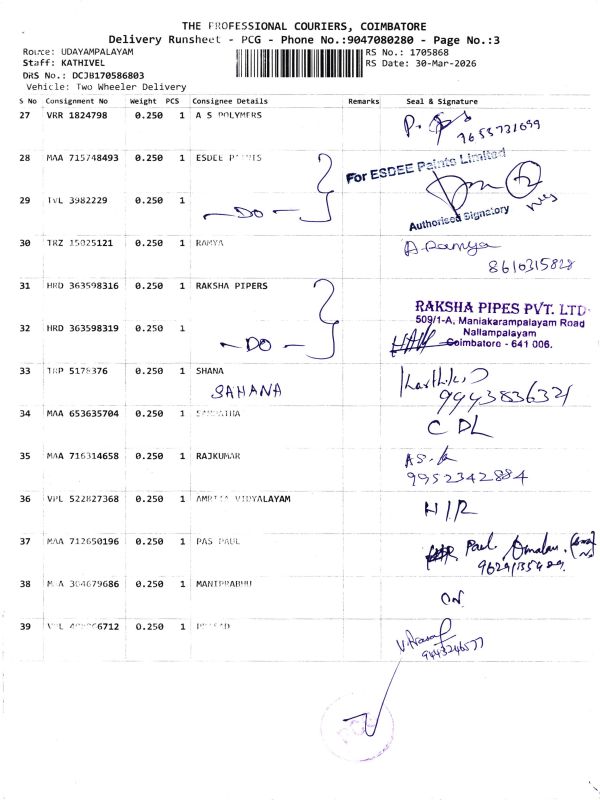 THE PROFESSIONAL COURIERS, COIMBATORE
Delivery Runsheet - PCG - Phone No.:9047080280 - Page No.:3
Route: UDAYAMPALAYAM
RS No.: 1705868
Staff: KATHIVEL
RS Date: 30-Mar-2026
DRS No.: DCJB170586803
Vehicle: Two Wheeler Delivery
S No Consignment No Weight PCS Consignee Details Remarks Seal & Signature
27 VRR 1824798 0.250 1 A S POLYMERS
7655731699
28 MAA 715748493 0.250 1 ESDEE PAINTS
For ESDEE Paints Limited
29 TVL 3982229 0.250 1
- DO -
Authorised Signatory
30 TRZ 15025121 0.250 1 RAMYA
A. Ramya
8610315828
31 HRD 363598316 0.250 1 RAKSHA PIPERS
RAKSHA PIPES PVT. LTD
509/1-A, Maniakarampalayam Road
Nallampalayam
Coimbatore - 641 006.
32 HRD 363598319 0.250 1
- DO -
33 TRP 5178376 0.250 1 SHANA
SAHANA
Karthik
9943836321
34 MAA 653635704 0.250 1
C DL
35 MAA 716314658 0.250 1 RAJKUMAR
9952342884
36 VPL 522827368 0.250 1 AMRITA VIDYALAYAM
H/R
37 MAA 712650196 0.250 1 PAS PAUL
Paul
38 MAA 304679686 0.250 1 MANIPRABHU
ON
39 0.250 1 PRASAD
9443246577
PCG